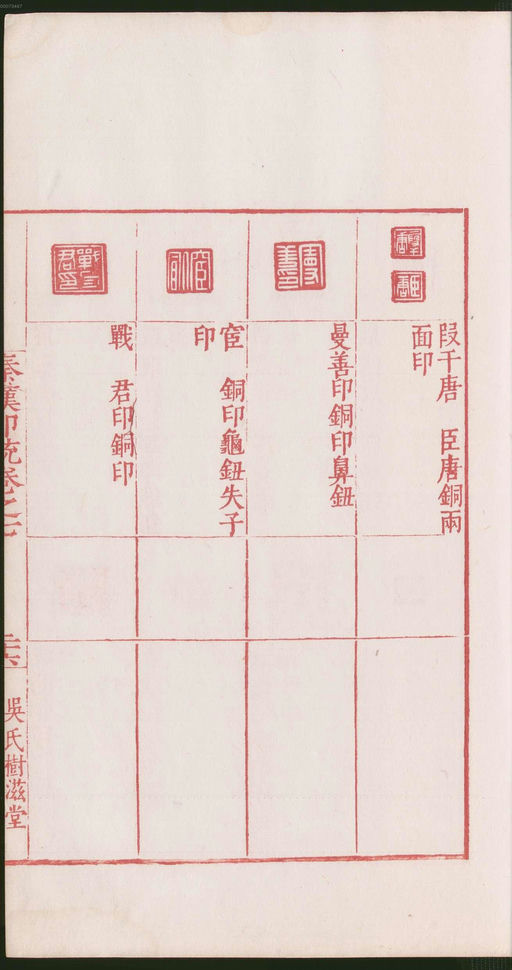 叚干唐　臣唐銅兩
面印
曼善印銅印鼻鈕
宦　銅印龜鈕失子
印
戰　君印銅印
秦漢印統卷之七
吳氏樹滋堂
00073467